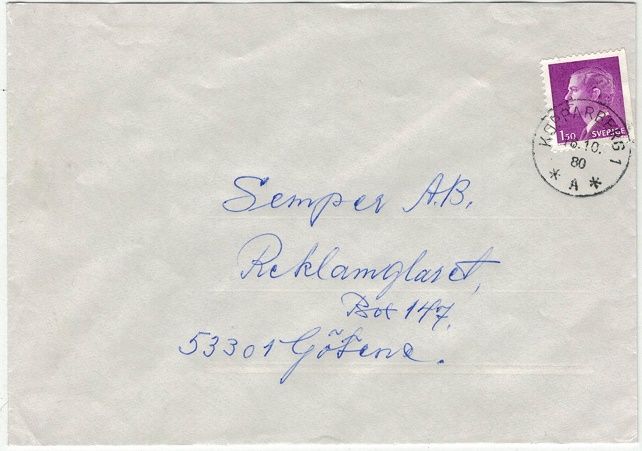 1.50 SVERIGE
KOPPARBERG 1
.10.
80
* A *
Semper A.B.
Reklamglaset,
Box 147,
53301 Götene.